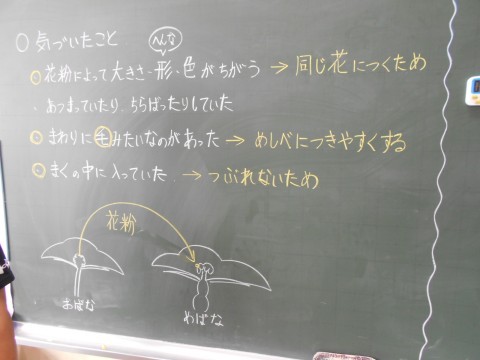 ○気づいたこと
へんな
○花粉によって大きさ・形・色がちがう→同じ花につくため
・あつまっていたり、ちらばったりしていた
○まわりに毛みたいなのがあった→めしべにつきやすくする
○まくの中に入っていた→つぶれないため
花粉
おばな
めばな